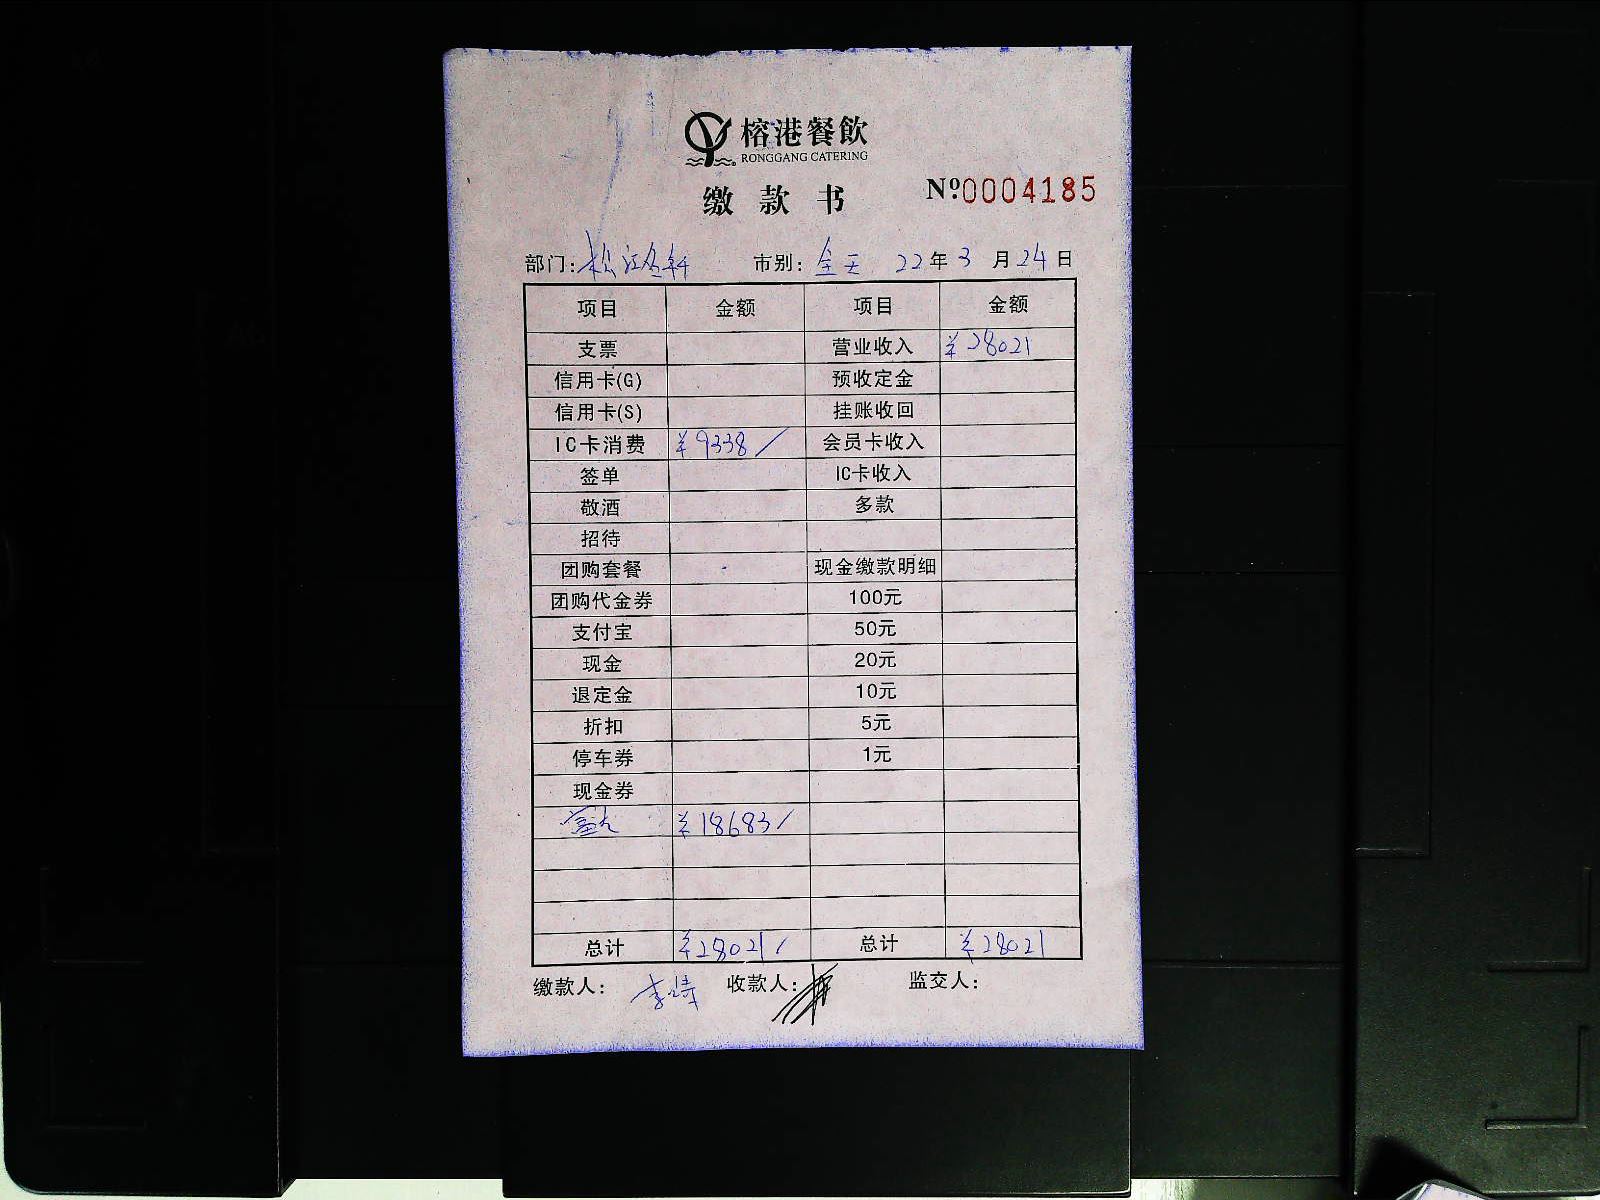 榕港餐飲
RONGGANG CATERING
缴款书 Nº.0004185
部门: 市别: 全天 22年3月24日
项目 金额 项目 金额
支票 营业收入 ¥28021
信用卡(G) 预收定金
信用卡(S) 挂账收回
IC卡消费 ¥9338/ 会员卡收入
签单 IC卡收入
敬酒 多款
招待
团购套餐 现金缴款明细
团购代金券 100元
支付宝 50元
现金 20元
退定金 10元
折扣 5元
停车券 1元
现金券
¥18683/
总计 ¥28021/ 总计 ¥28021
缴款人: 收款人: 监交人: